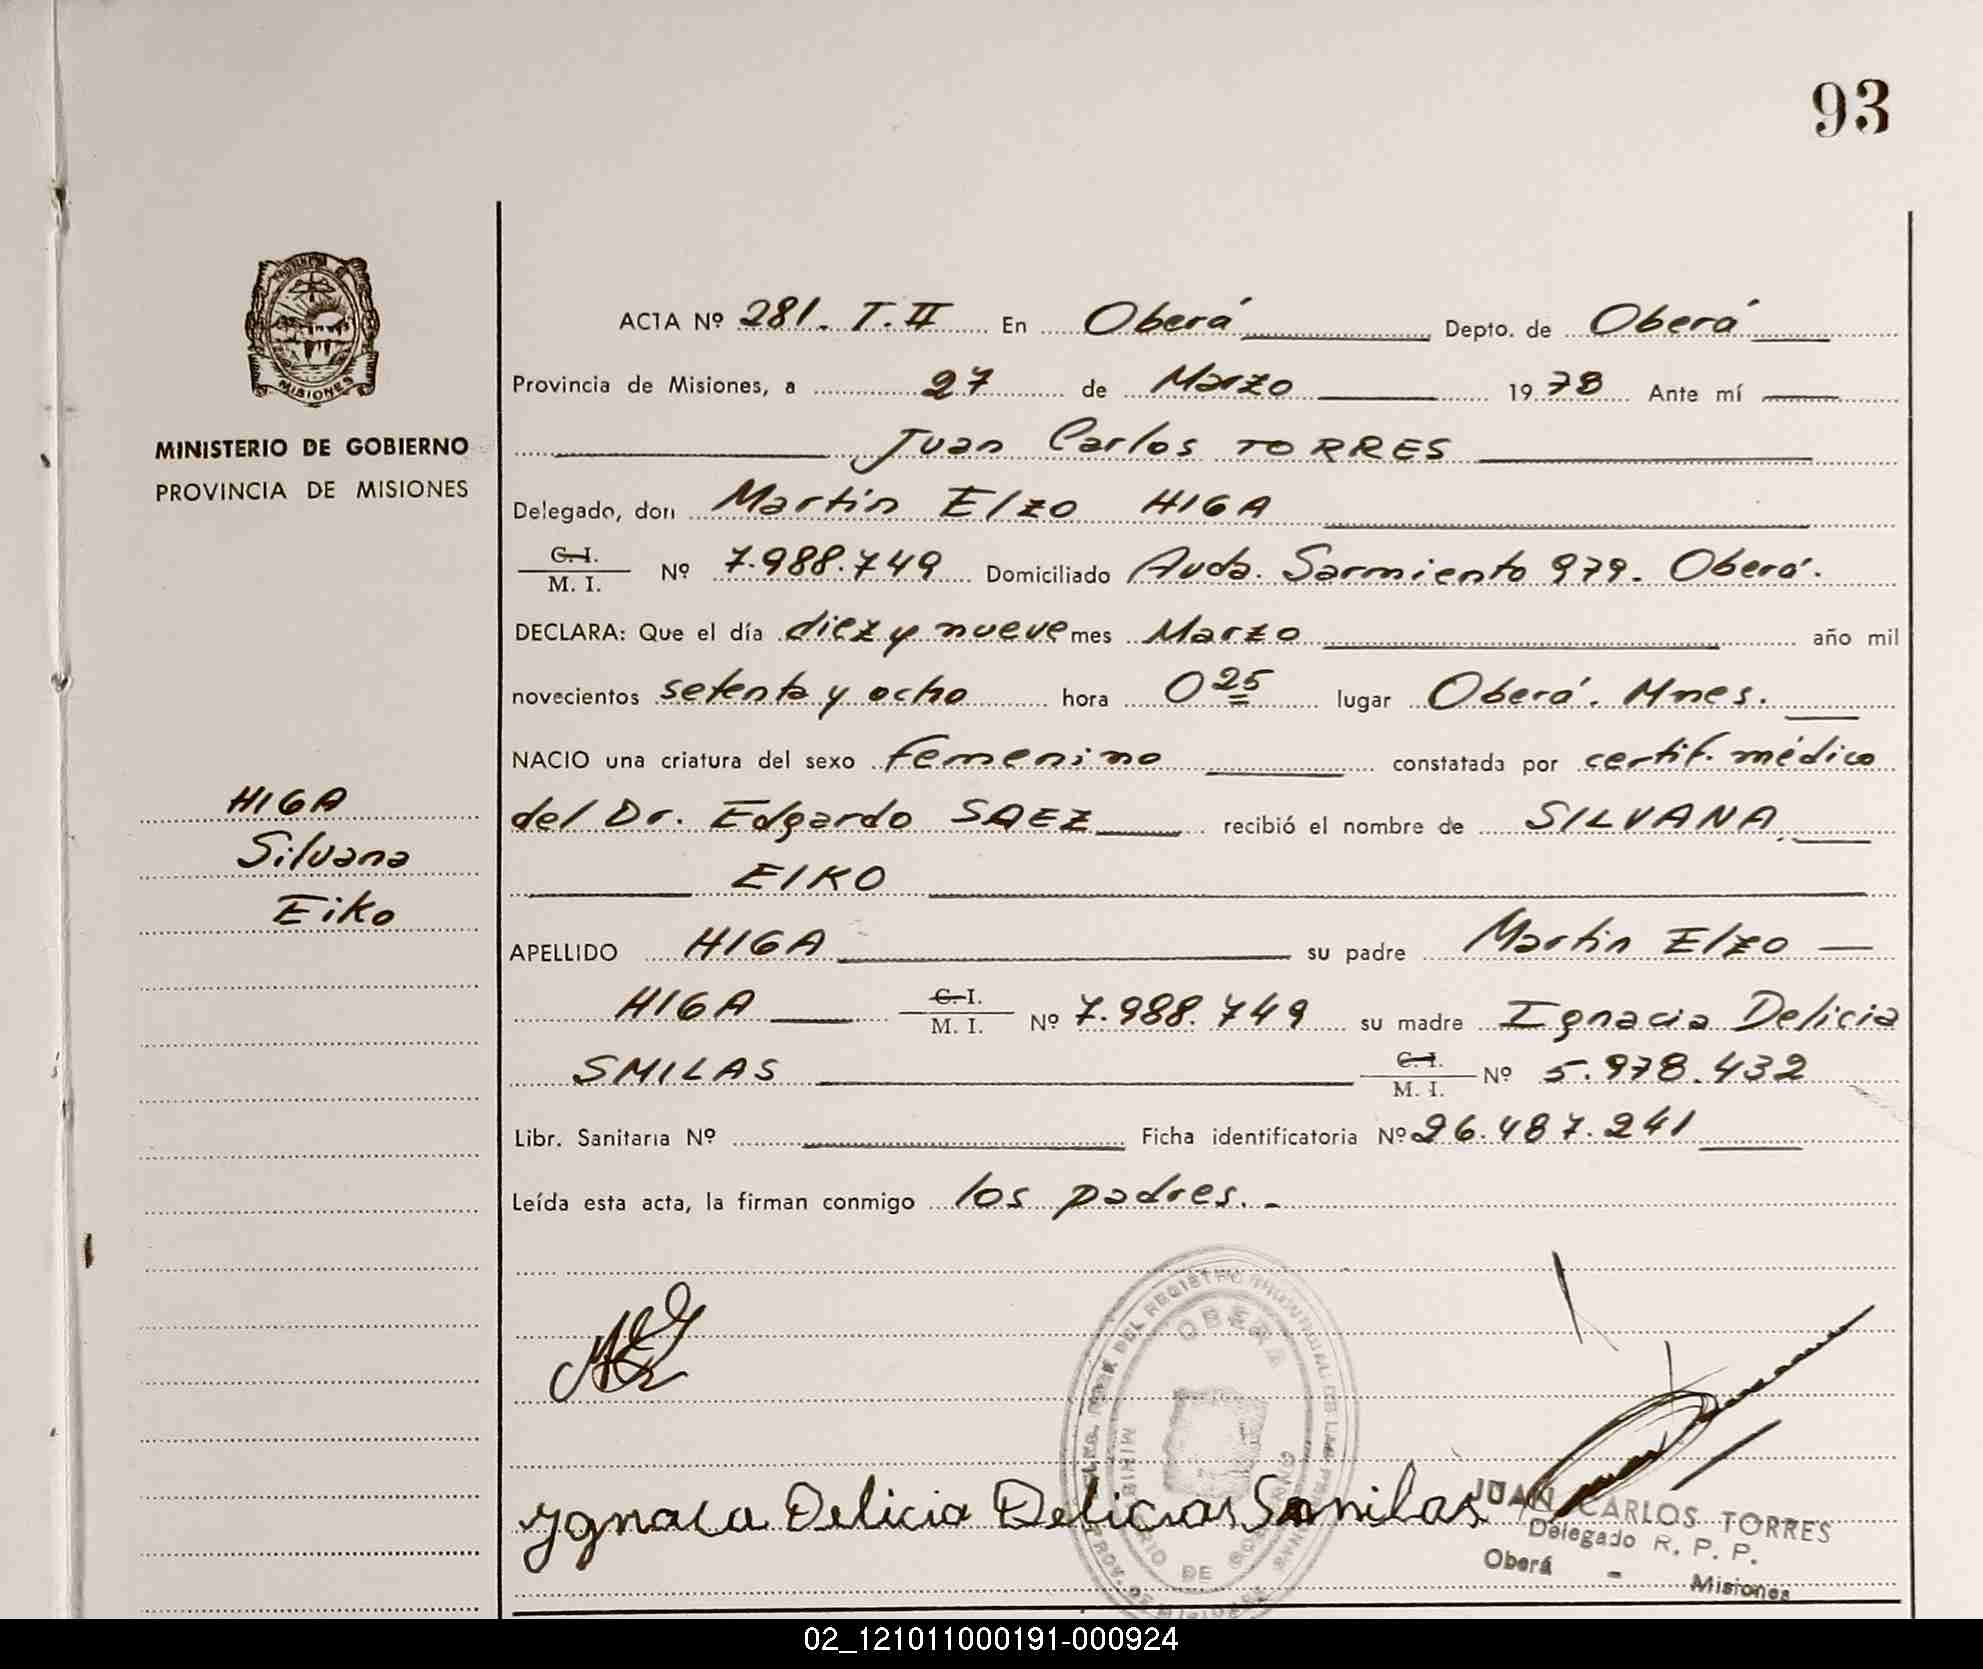 93
MISIONES
MINISTERIO DE GOBIERNO
PROVINCIA DE MISIONES
HIGA
Silvana
Eiko
ACTA Nº 281. T. II En Oberá Depto. de Oberá
Provincia de Misiones, a 27 de Marzo 1978 Ante mí
Juan Carlos TORRES
Delegado, don Martin Elzo HIGA
C. I.
M. I. Nº 7.988.749 Domiciliado Avda. Sarmiento 979. Oberá.
DECLARA: Que el día diez y nueve mes Marzo año mil
novecientos setenta y ocho hora 0 25 lugar Oberá. Mnes.
NACIO una criatura del sexo femenino constatada por certif. médico
del Dr. Edgardo SAEZ recibió el nombre de SILVANA
EIKO
APELLIDO HIGA su padre Martin Elzo
HIGA C. I. M. I. Nº 7.988.749 su madre Ignacia Delicia
SMILAS C. I. M. I. Nº 5.978.432
Libr. Sanitaria Nº Ficha identificatoria Nº 26.487.241
Leída esta acta, la firman conmigo los padres.-
OBERA
Ygnacia Delicia Delicias Smilas
JUAN CARLOS TORRES
Delegado R. P. P.
Oberá - Misiones
02_121011000191-000924